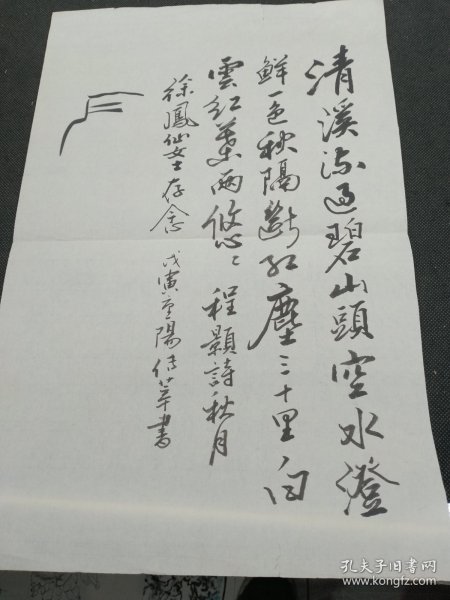 清溪流過碧山頭空水澄
鮮一色秋隔斷紅塵三十里白
雲紅葉兩悠〻程顥詩秋月
徐鳳仙女士存念 戊寅重陽傅華書
孔夫子旧书网
www.kongfz.com